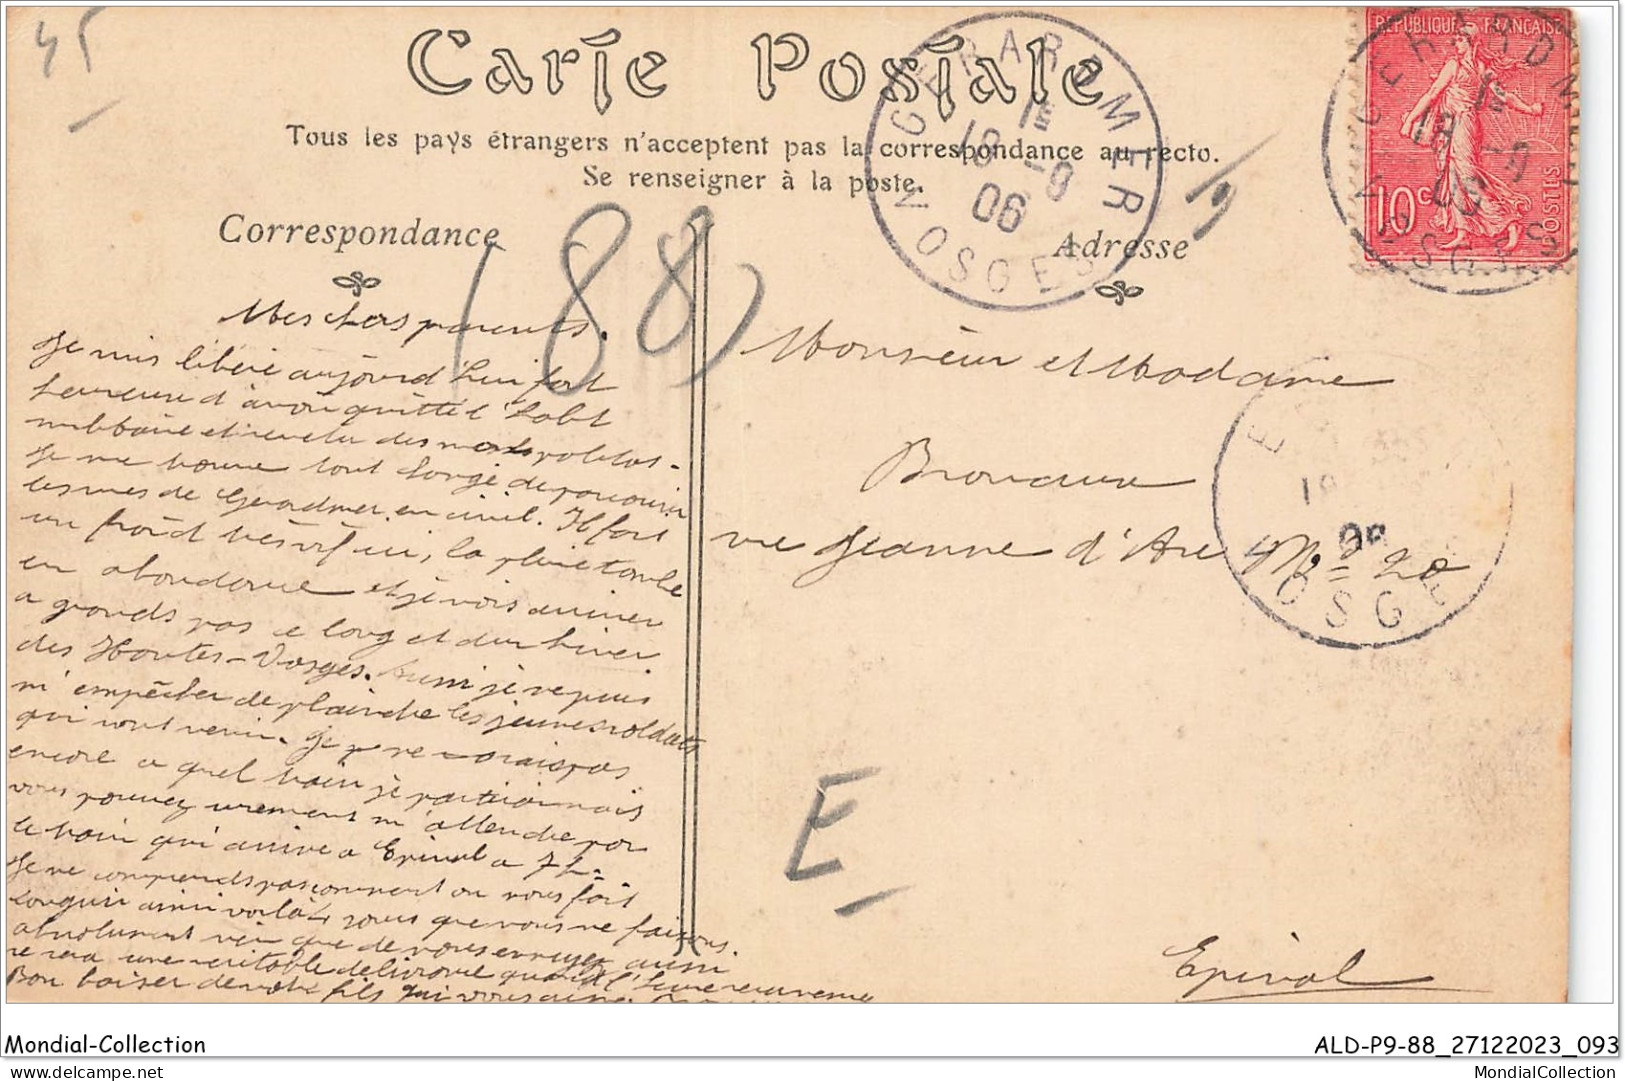 45
Carte Postale
Tous les pays étrangers n'acceptent pas la correspondance au recto.
Se renseigner à la poste.
Correspondance
Adresse
GERARDMER
1E
18 -9
06
VOSGES
RÉPUBLIQUE FRANÇAISE
10c
POSTES
GERARDMER
18 -9
06
VOSGES
(88)
19
Mes chers parents.
Je suis libéré aujourd'hui fort
heureux d'avoir quitté l'habit
militaire et revetu des
Je me trouve tout de parcourir
les rues de Gerardmer en civil. Il fait
un froid très vif ici, la pluie tombe
en abondance et je vois arriver
a grands pas le long et dur hiver
des Hautes-Vosges. Aussi je ne puis
m'empêcher de plaindre les jeunes soldats
qui vont venir. Je ne sais pas
encore a quel train je partirai mais
vous pouvez surement m'attendre par
le train qui arrive a Epinal a 7h
Je ne comprends pas comment on nous fait
languir ainsi voilà 4 jours que nous ne faisons
absolument rien que de nous ennuyer aussi
ce sera une veritable delivrance quand l'heure
Bon baiser de votre fils qui vous aime
Monsieur et Madame
rue Jeanne d'Arc No 20
E
VOSGES
E
Epinal
Mondial-Collection
ALD-P9-88_27122023_093
MondialCollection